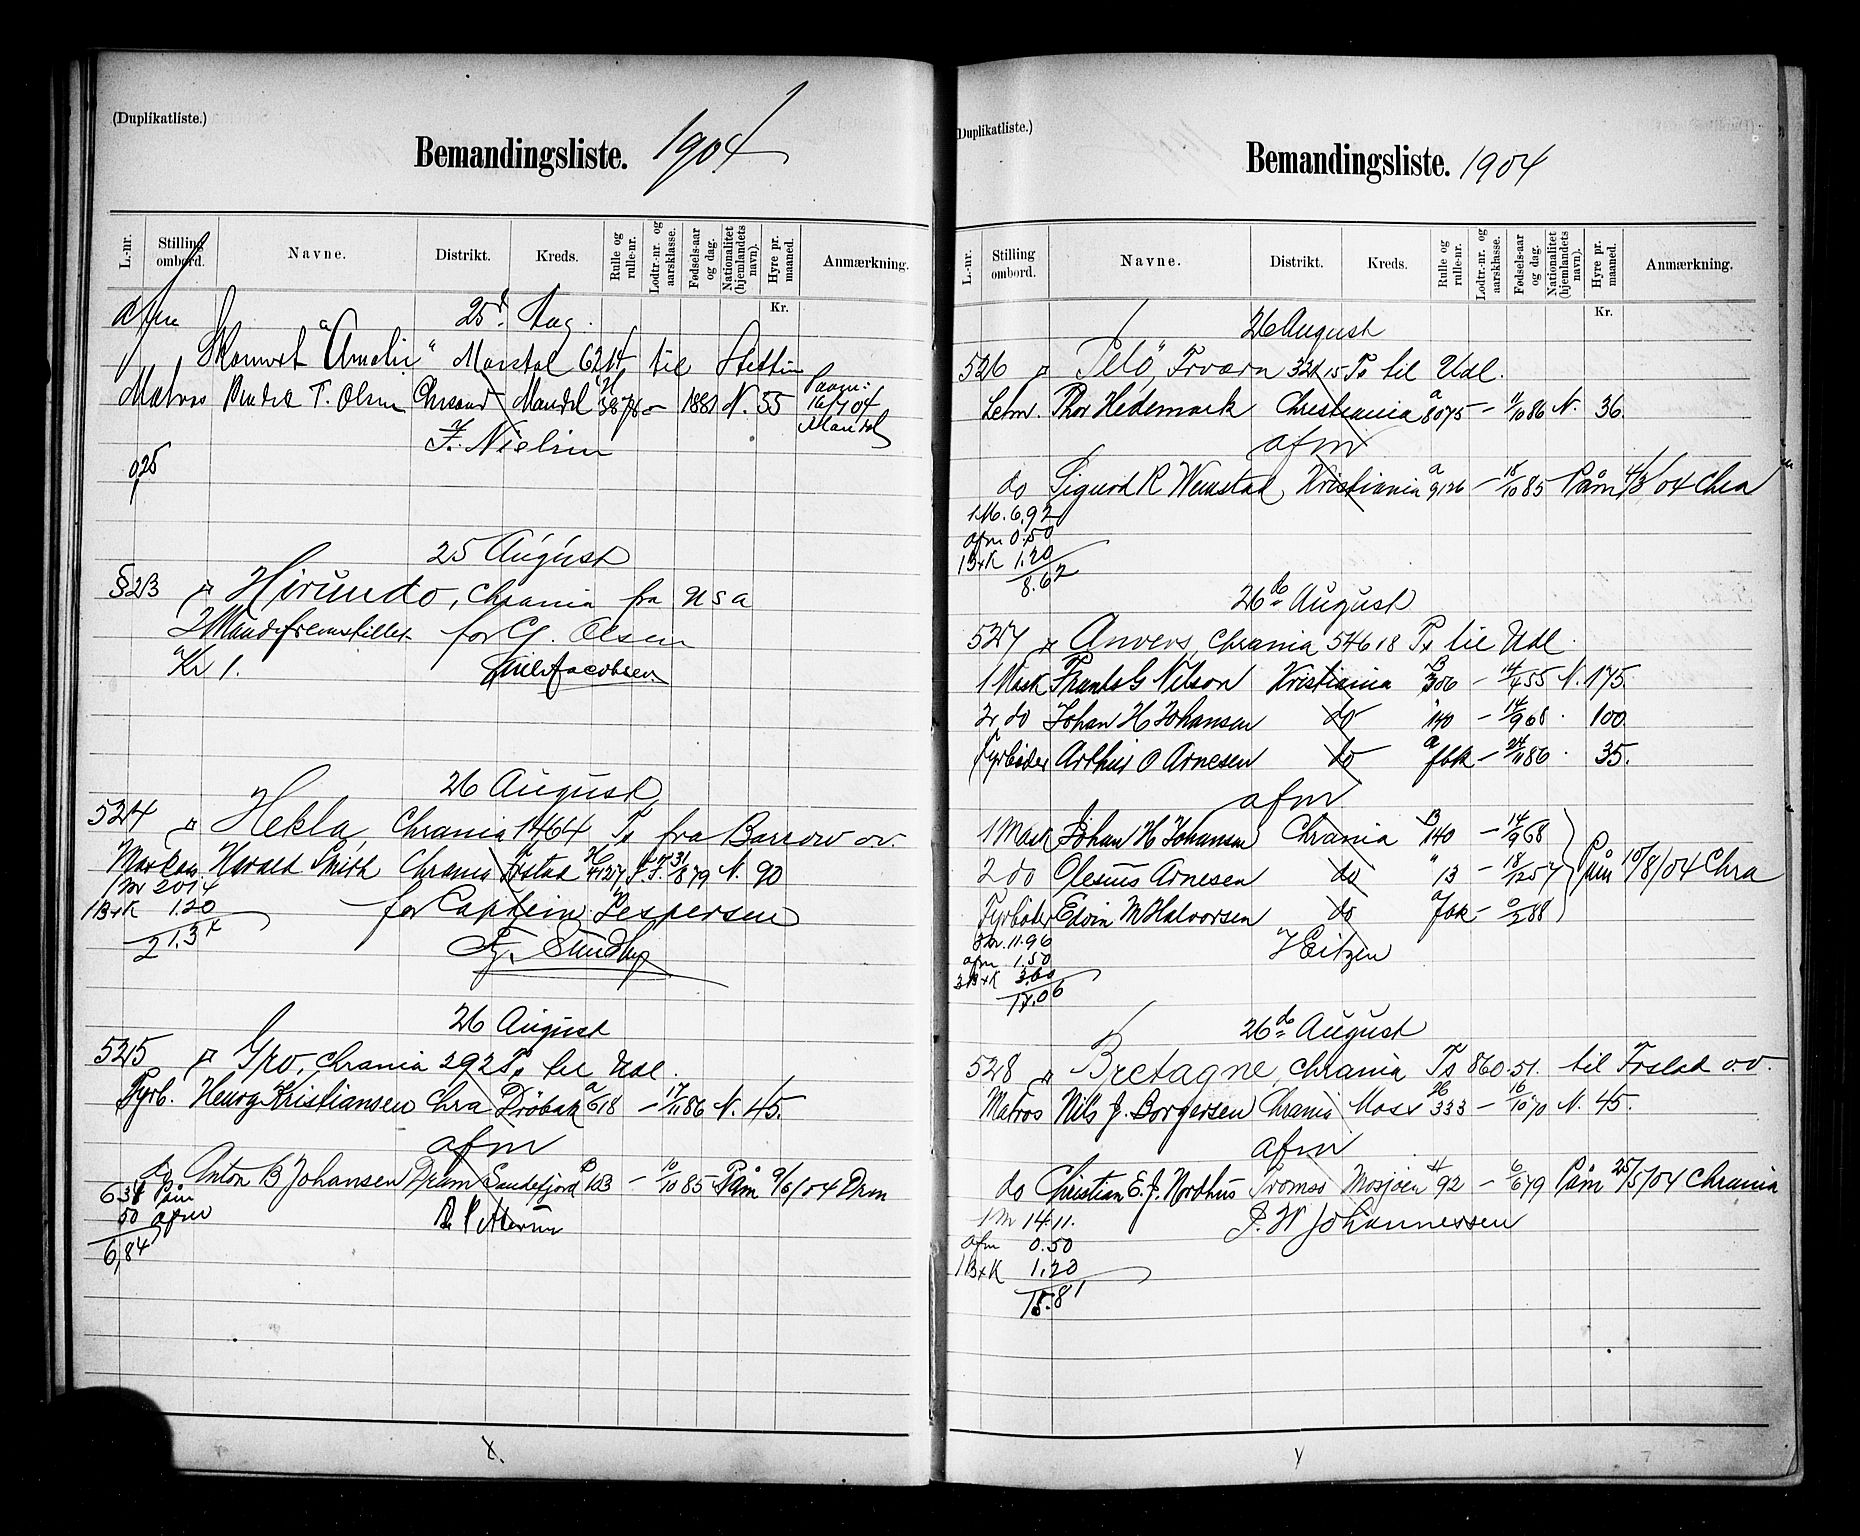 (Duplikatliste.)
Bemandingsliste. 1904
L.-nr. Stilling ombord. Navne. Distrikt. Kreds. Rulle og rulle-nr. Lodtr.-nr. og aarsklasse. Fødsels-aar og dag. Nationalitet (hjemlandets navn). Hyre pr. maaned. Anmærkning.
Kr.
afm 25d. Aug.
"Amalie" Marstal 62 til Stettin
Matros T. Olsen Mandal 3878 – 1881 N. 55 Paam: 16/7 04 Mandal
F. Nielsen
0,25
25 August
§23 Hirundo, Chrania fra USA
2 Mands fremstillet for G. Olsen
Kr 1. Jacobsen
26 August
524 Hekla, Chrania 1464 Ts fra Barrow ov.
Harald Smith Chrania Frstad 4127 31/8 79 N. 90
1 M 20.14
1 B+K 1.20
21.34
for Captein Jespersen
Sundby
26 August
525 Gro, Chrania 292 Ts til Udl.
Fyrb. Henry Kristiansen Chra Dröbak a 618 – 17/11 86 N. 45.
afm
do Anton B Johansen Dram Sandefjord 103 – 10/10 85 Påm 9/6/04 Drm
6 34 Påm
50 afm
6,84
X.
(Duplikatliste.)
Bemandingsliste. 1904
L.-nr. Stilling ombord. Navne. Distrikt. Kreds. Rulle og rulle-nr. Lodtr.-nr. og aarsklasse. Fødsels-aar og dag. Nationalitet (hjemlandets navn). Hyre pr. maaned. Anmærkning.
Kr.
26 August
526 Telö" Tvörn 324 15 Ts til Udl.
Letm. Thor Hedemark Christiania a 8075 – 11/10 86 N. 36.
afm
do Sigurd R Wemstad Kristiania a 9126 – 18/10 85 Påm 4/3/04 Chra
1 M. 6.92
afm 0.50
1 B+K 1.20
8.62
26de August
527 Anvers, Chrania 546 18 Ts til Udl.
1 Mask Frants G Nilson Kristiania B 306 – 14/4 55 N. 175.
2r do Johan H Johansen do " 140 – 14/9 68 . 100
Fyrböder Arthur O Arnesen do a fbk – 24/11 86 . 35.
afm
1 Mask Johan H Johansen Chrania B 140 – 14/9 68
2 do Olesius Arnesen do " 13 – 18/12 57 Påm 10/8/04 Chra
Fyrböder Edvin M Halvorsen do a fbk – 9/2 88
3 M. 11.96
afm 1.50
3 B+K 3.60
17.06
H Eitzen
26de August
528 Bretagne, Chrania Ts 860.51. til Frstad o.v.
Matros Nils J. Borgersen Chrania Moss H 333 – 16/10 70 N. 45.
afm
do Christian E. J. Nordhus Tromsø Mosjøen H 92 – 6/6 79 Påm 25/5/04 Chrania
1 M 14.11.
afm 0.50
1 B+K 1.20
15.81
J. W Johannessen
Y